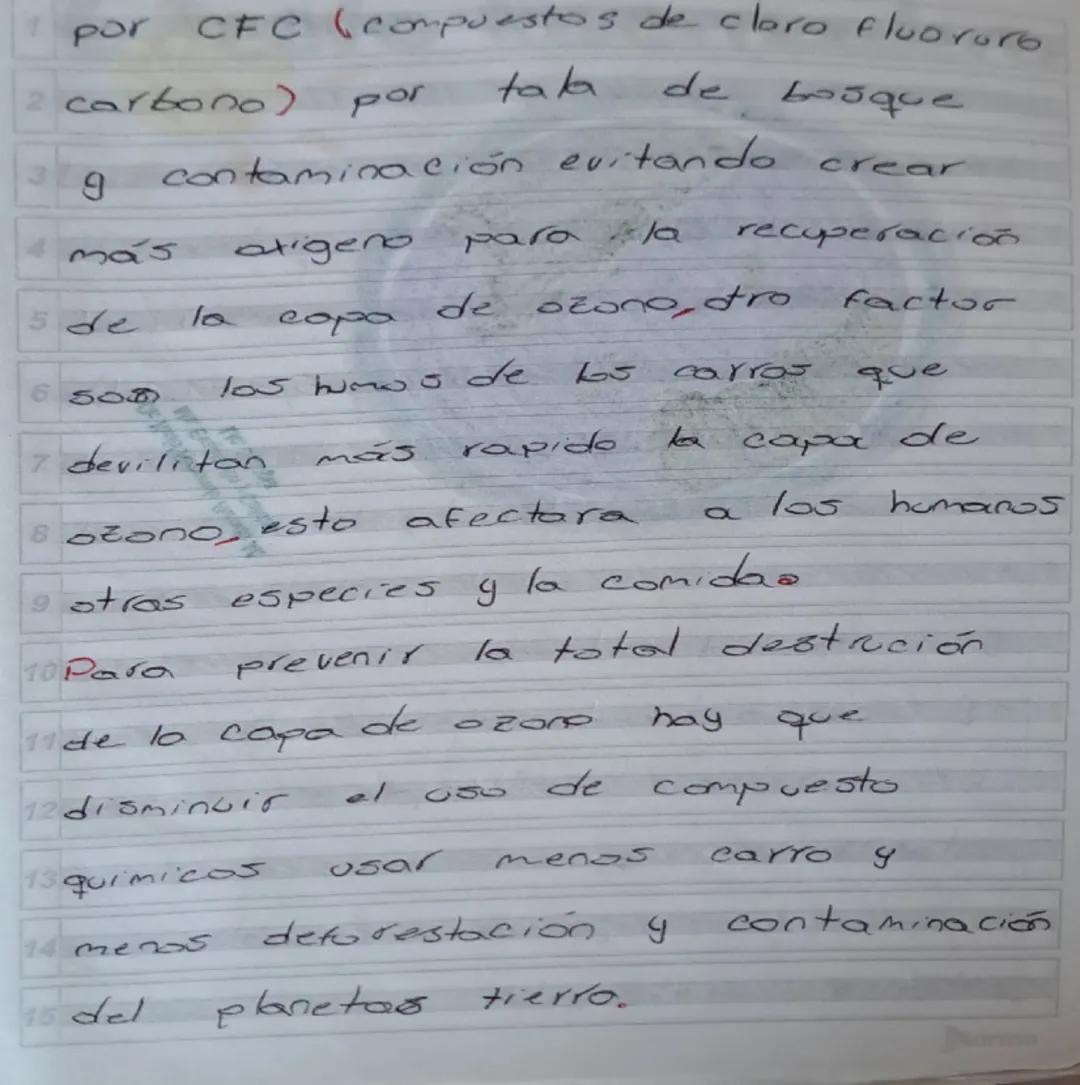 1 por CFC (compuestos de cloro fluoruro
2 carbono) por tala de bosque
3 y contaminación evitando crear
4 más oxigeno para la recuperación
5 de la capa de ozono, otro factor
6 son los humos de los carros que
7 devilitan más rapido la capa de
8 ozono, esto afectara a los humanos
9 otras especies y la comida.
10 Para prevenir la total destrución
11 de la capa de ozono hay que
12 disminuir el uso de compuesto
13 quimicos usar menos carro y
14 menos deforestación y contaminación
15 del planetas tierra.
Norma